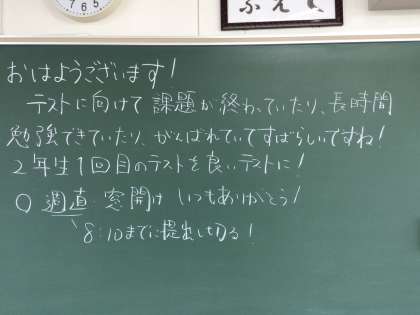 おはようございます!
テストに向けて課題が終わっていたり、長時間
勉強できていたり、がんばれていてすばらしいですね!
2年生1回目のテストを良いテストに!
○週直 窓開け いつもありがとう!
8:10までに提出し切る!